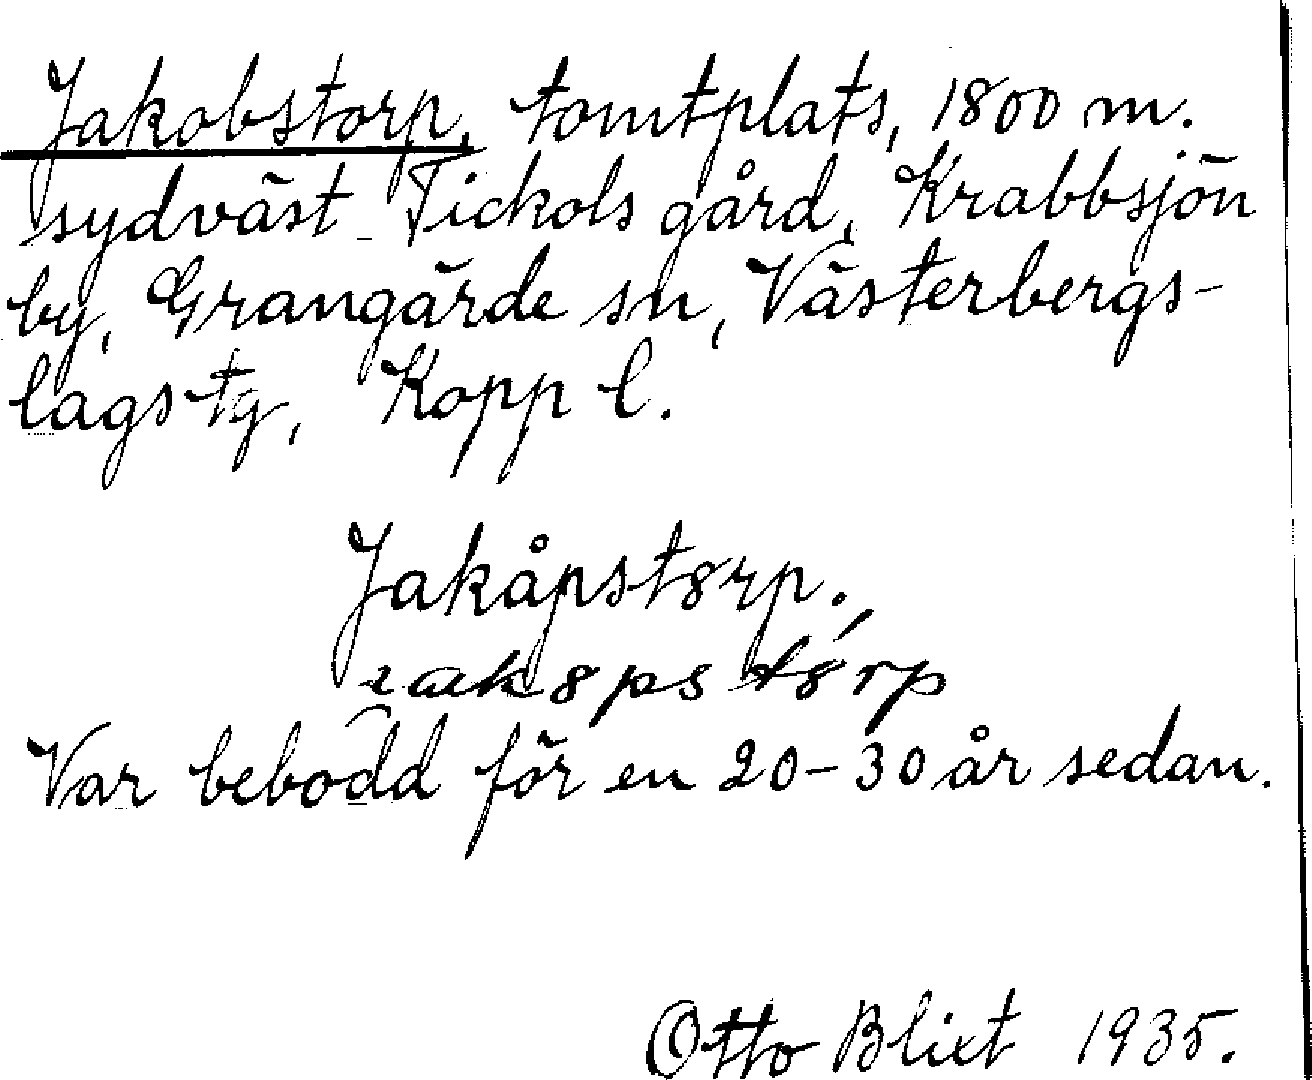 Jakobstorp, tomtplats, 1800 m.
sydväst Tickols gård, Krabbsjön
by, Grangärde sn, Västerbergs-
lags tg, Kopp l.
Jakåpstorp.
Var bebodd för en 20-30 år sedan.
Otto Blixt 1935.